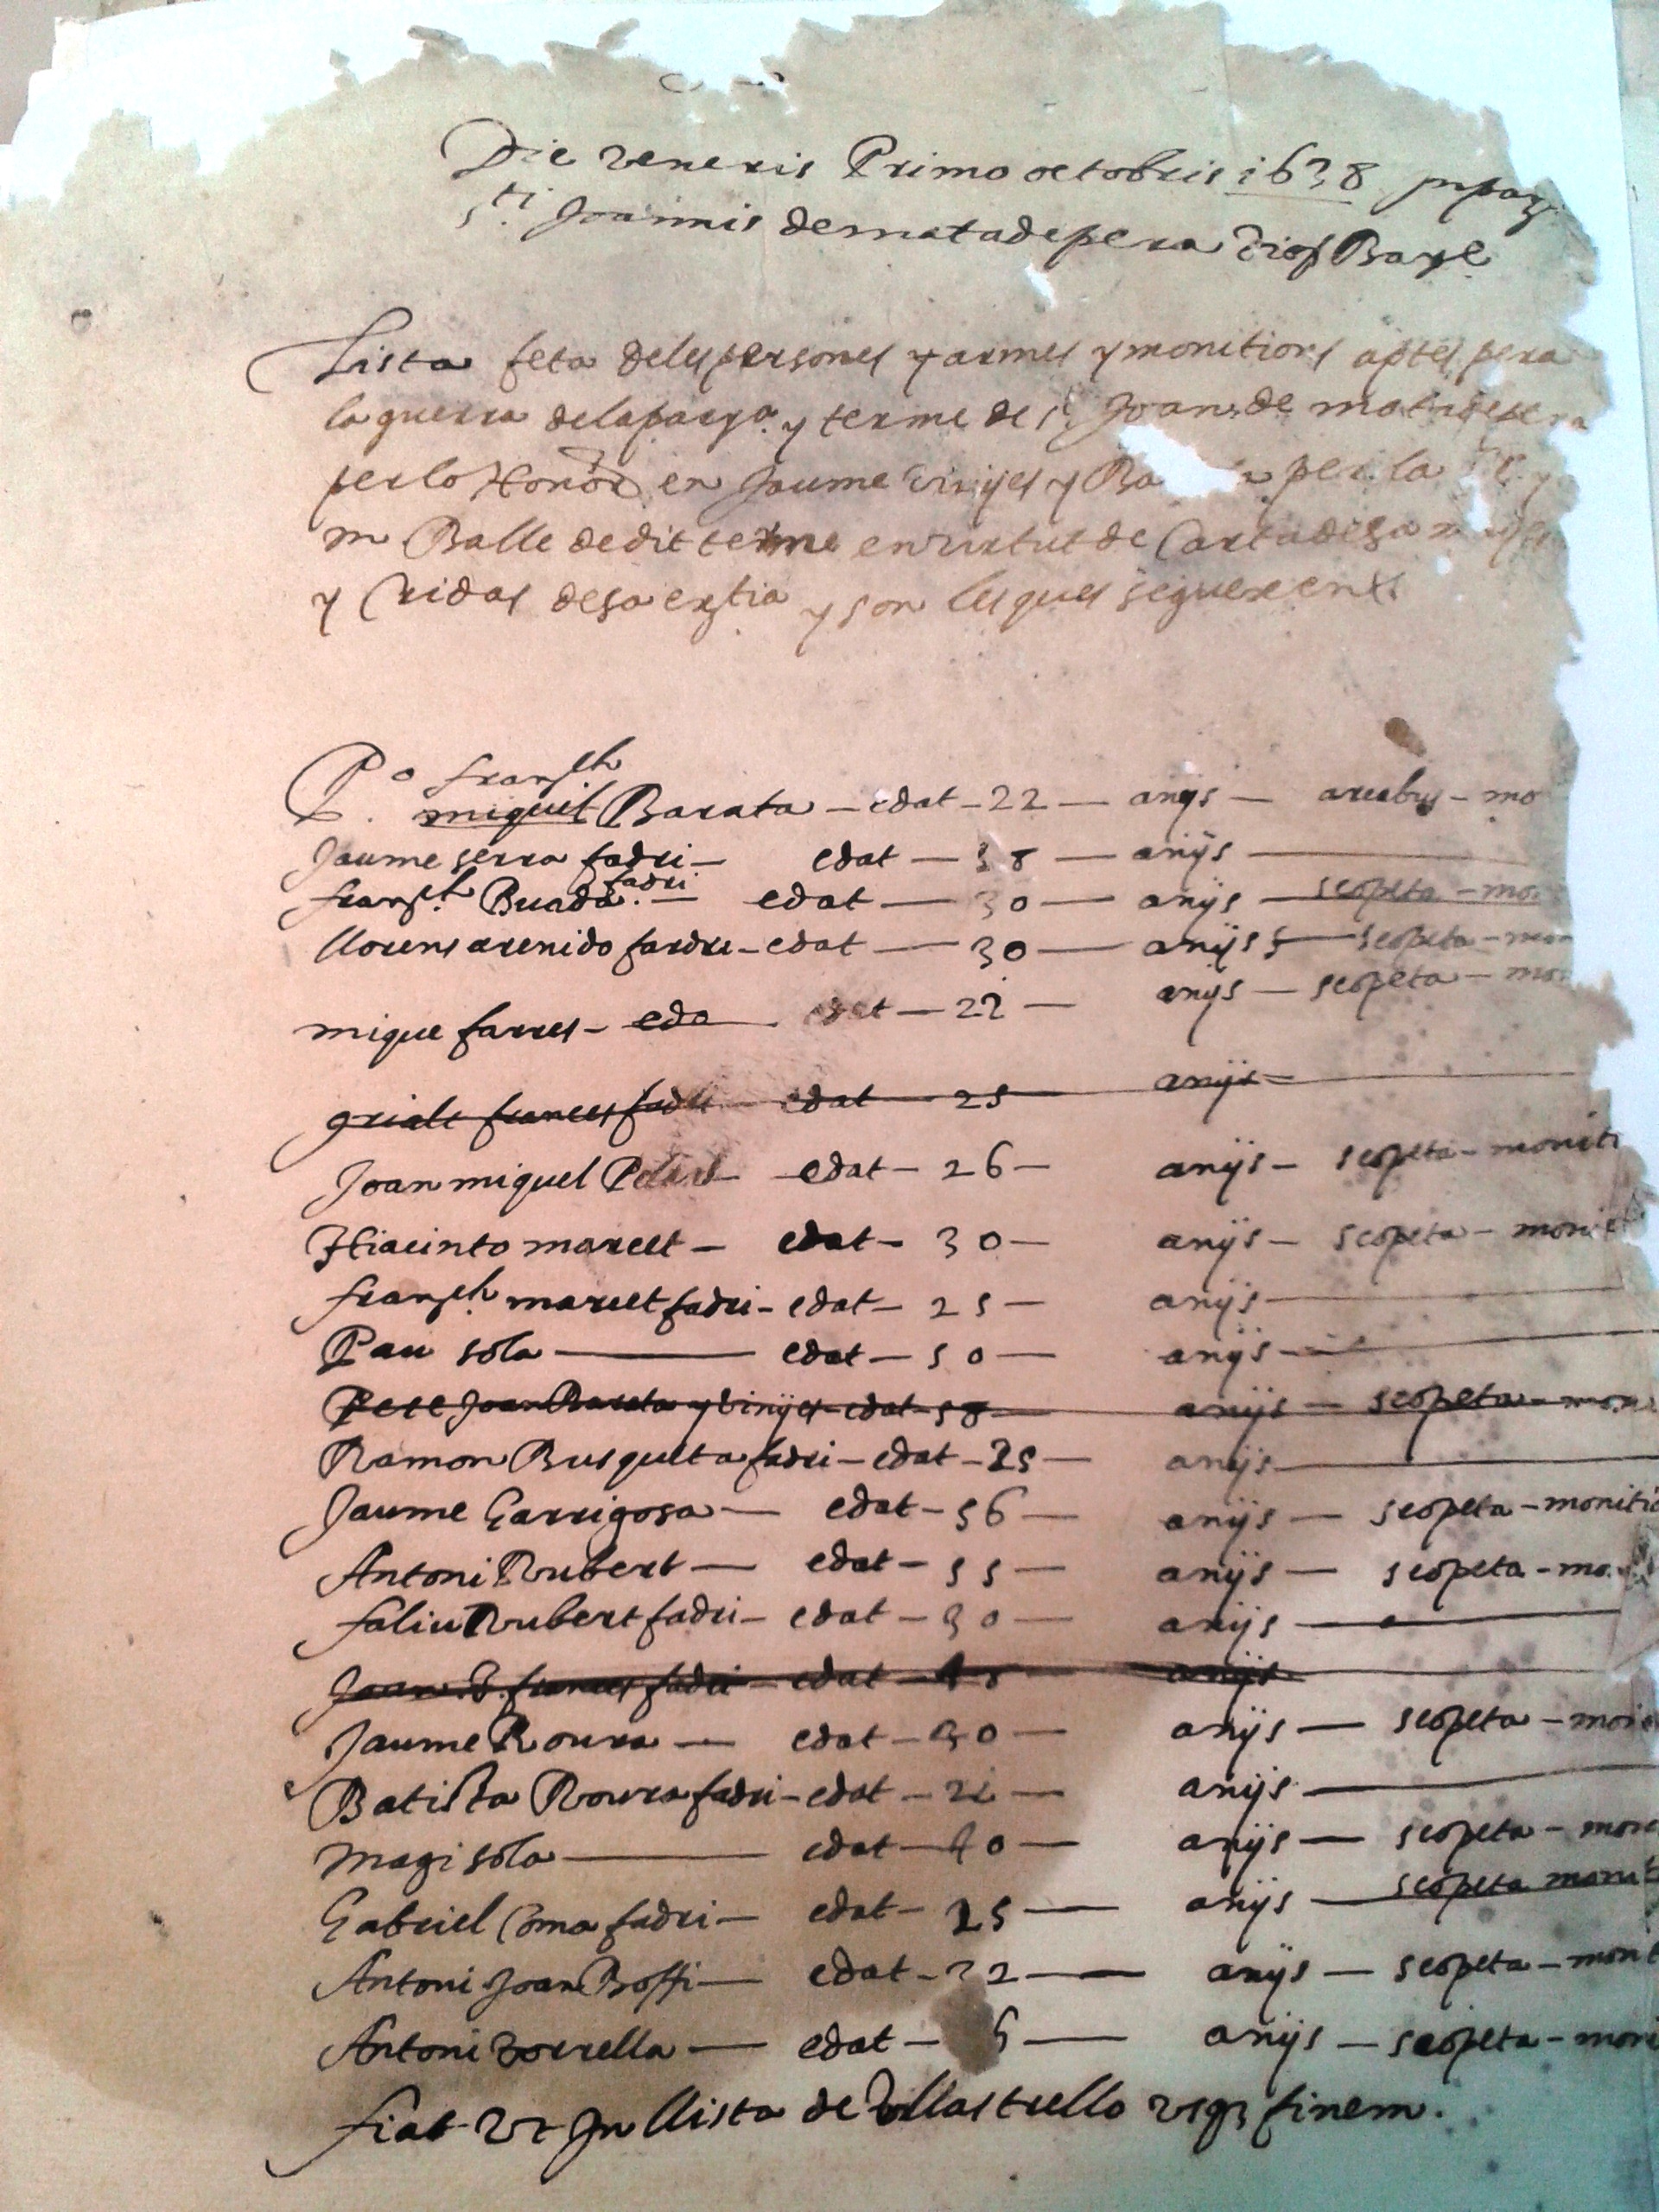 Die veneris Primo octobris 1638 in par
sti Joannis de matadepera dios Bar
Lista feta de les persones y armes y monitions aptes pera
la guerra de la parra y terme de st Joan de matadepera
per lo Honor en Jaume vinyes y Ba per la
m Balle de dit terme en virtut de Carta de sa
y Cridas de sa extia y son les ques seguexen
Po fransch
miquil Barata – edat – 22 – anys – arcabus – mo
Jaume serra fadri – edat – 38 – anijs
fadri
fransch Buada – edat – 30 – anijs – scopeta – mo
llorens arenido fardri – edat – 30 – anijs – scopeta – mon
mique farres – eda edat – 22 – anijs – scopeta – mo
frances fadri edat – 25 anijs
Joan miquel – edat – 26 – anijs – scopeta – moniti
Hiacinto marcet – edat – 30 – anijs – scopeta – monit
fransch marcet fadri – edat – 25 – anijs
Pau sola – edat – 50 – anijs
Pere Joan Barata y vinyes – edat – 58 – anijs – scopeta – moni
Ramon Busqueta fadri – edat – 25 – anijs
Jaume Garrigosa – edat – 56 – anijs – scopeta – monitio
Antoni Rubert – edat – 55 – anijs – scopeta – mo
faliu Rubert fadri – edat – 30 – anijs
Joan frances fadri – edat – 18 anijs
Jaume Roura – edat – 30 – anijs – scopeta – moni
Batista Roura fadri – edat – 21 – anijs
Magi sola – edat – 40 – anijs – scopeta – moni
Gabriel Coma fadri – edat – 25 – anijs – scopeta monit
Antoni Joan Boffi – edat – 22 – anijs – scopeta – monit
Antoni torrella – edat – 5 – anijs – scopeta – moni
fiat ut in llista de Vllastrello usqz finem.